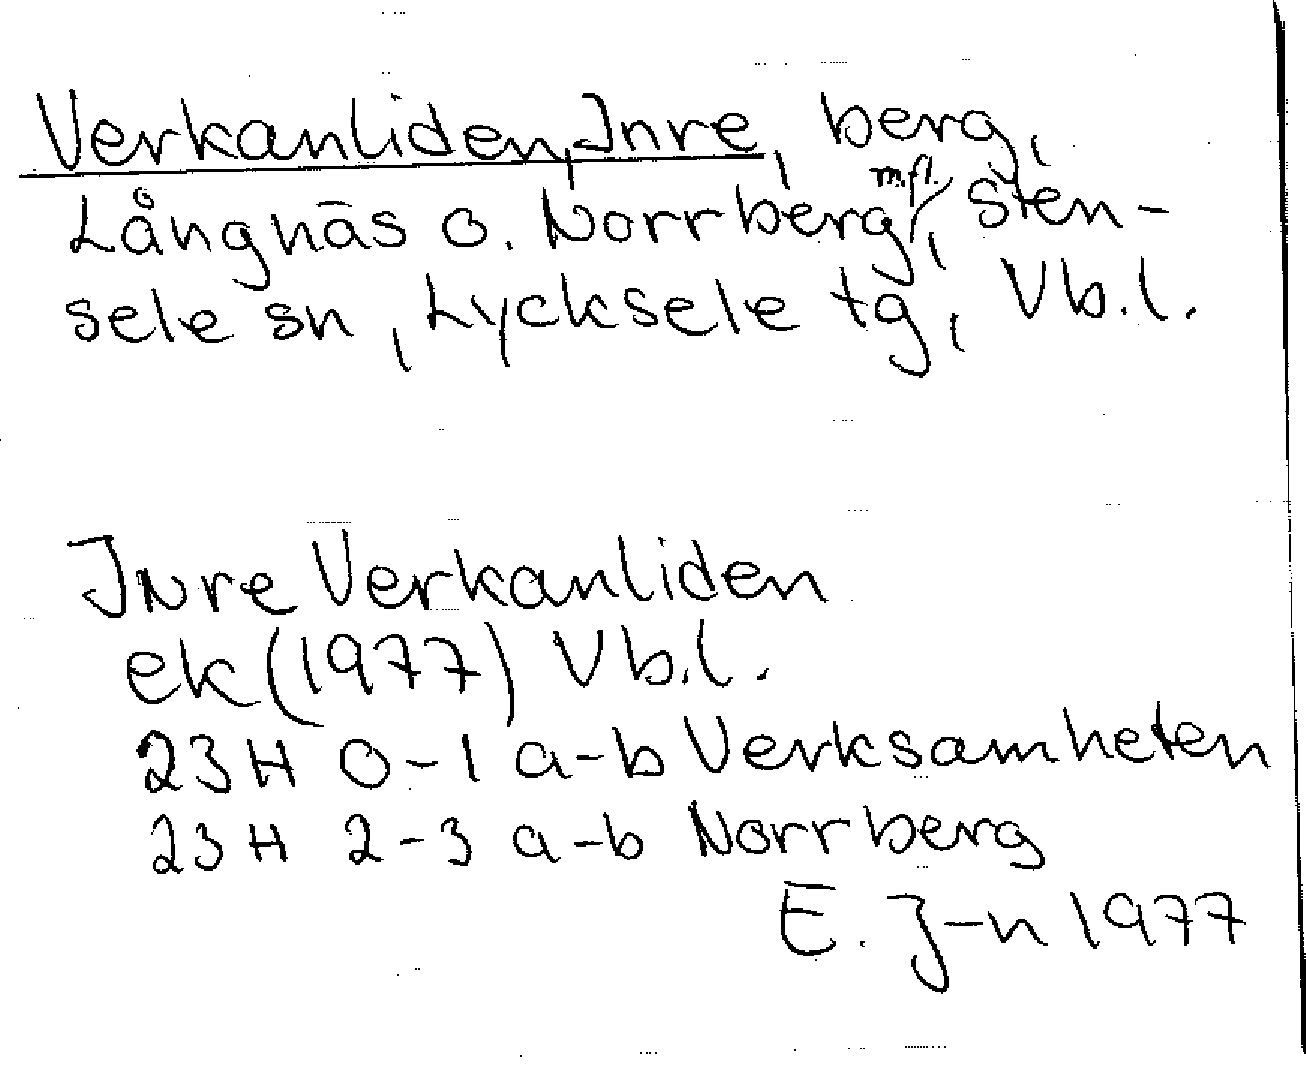 Verkanliden, Inre, berg,
Långnäs o. Norrberg m.fl., Sten-
sele sn, Lycksele tg, Vb.l.
Inre Verkanliden
ek (1977) Vb.l.
23H 0-1 a-b Verksamheten
23H 2-3 a-b Norrberg
E. J-n 1977